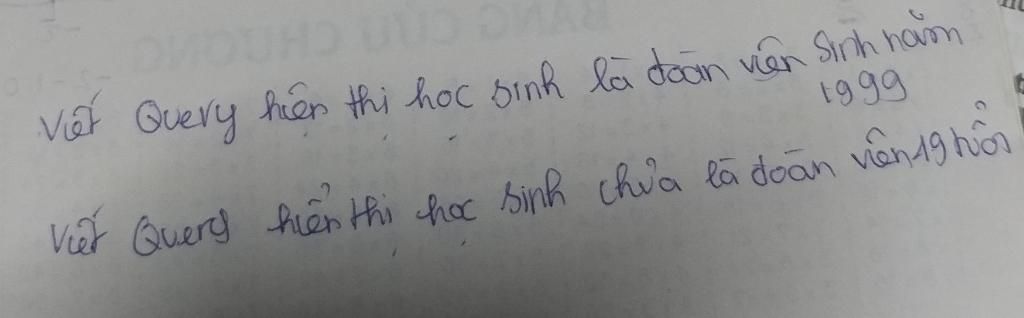 Viết Query hiện thị học sinh là đoàn viên sinh năm
1999
Viết Query hiển thị học sinh chưa là đoàn viên 19 tuổi